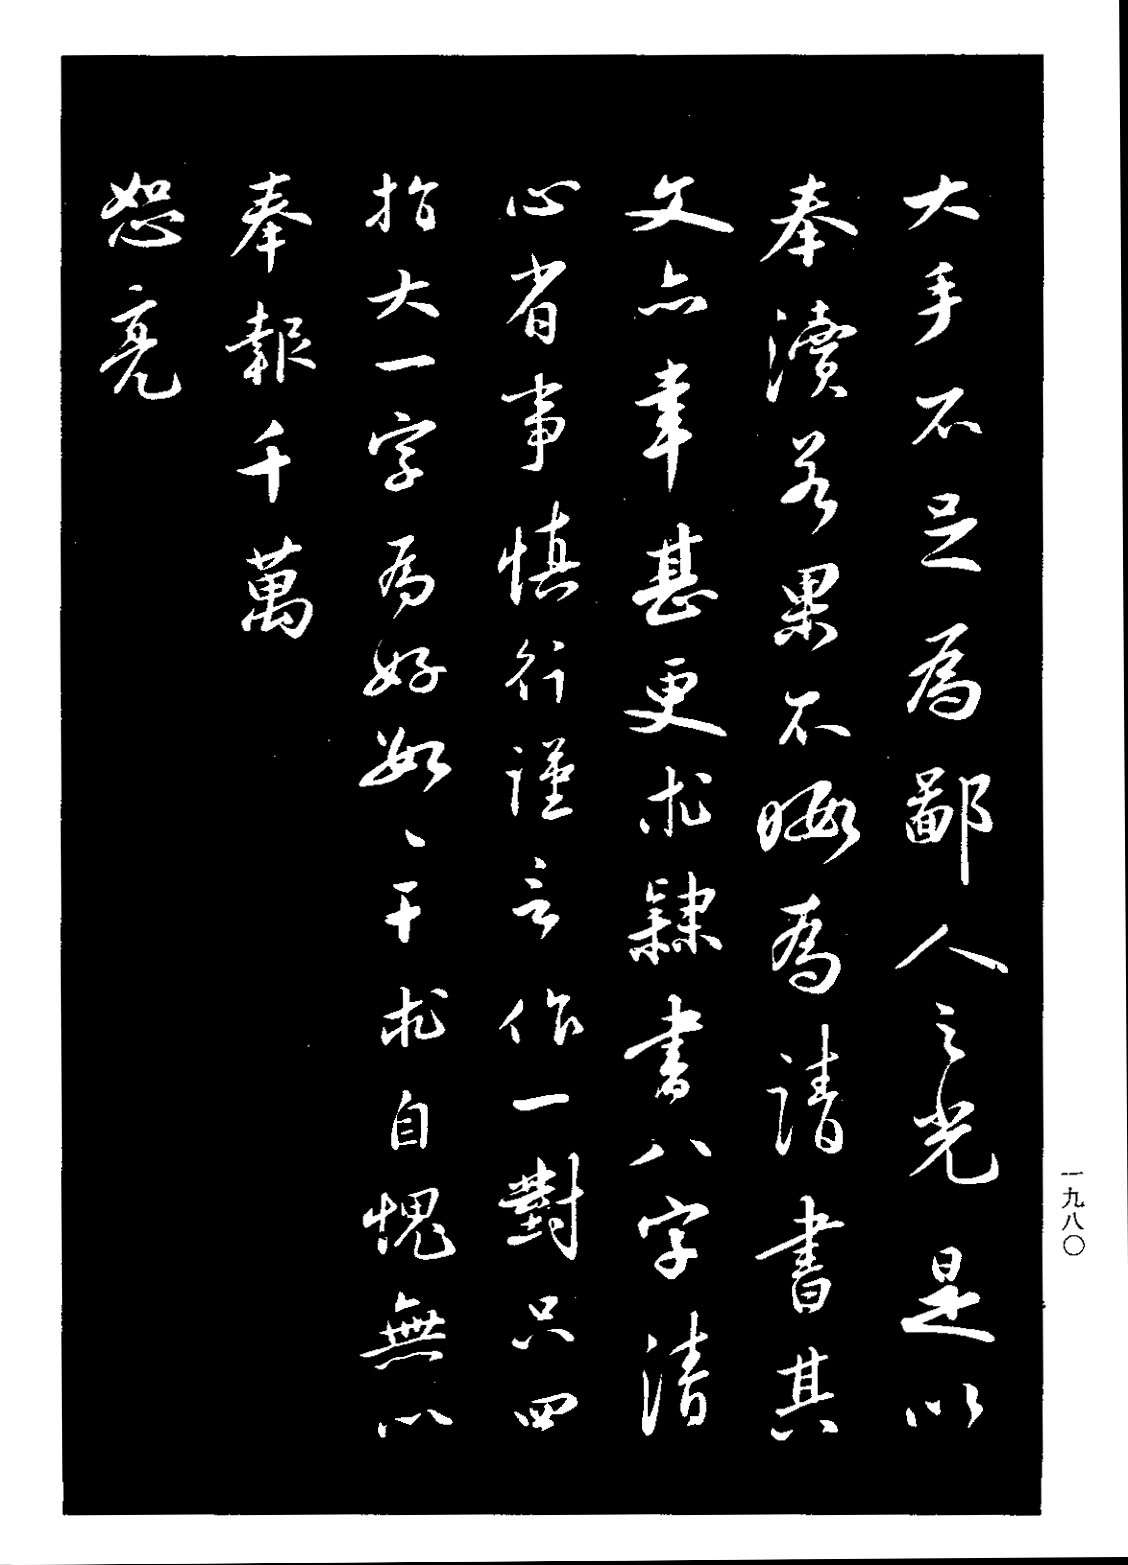 大手不足為鄙人之光是以
奉瀆若果不晦為請書其
文亦幸甚更求隸書八字清
心省事慎行謹言作一對只四
指大一字為好數〻干求自愧無以
奉報千萬
恕亮
一九八〇